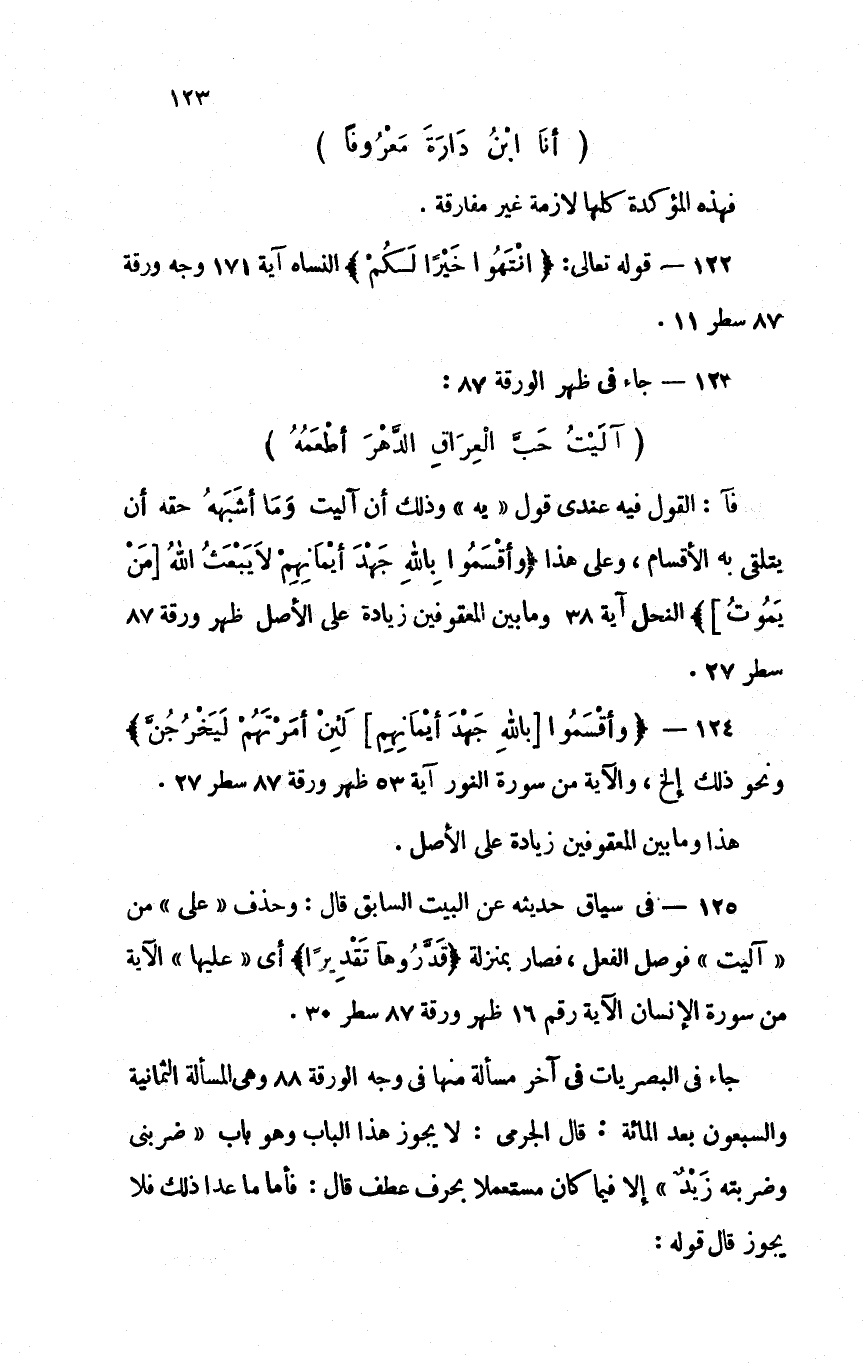 ١٢٣
( أنَا ابْنُ دَارَةَ مَعْرُوفاً )
فهذه المؤكدة كلها لازمة غير مفارقة .
١٢٢ — قوله تعالى: ﴿ انْتَهُوا خَيْرًا لَكُمْ ﴾ النساء آية ١٧١ وجه ورقة
٨٧ سطر ١١ .
١٢٣ — جاء فى ظهر الورقة ٨٧ :
( آلَيْتُ حَبَّ الْعِرَاقِ الدَّهْرَ أطْعَمُهُ )
فآ : القول فيه عندى قول « يه » وذلك أن آليت وَمَا أشْبَهَهُ حقه أن
يتلقى به الأقسام ، وعلى هذا ﴿وأقْسَمُوا بِاللهِ جَهْدَ أيْمَانِهِمْ لاَيَبْعَثُ اللهُ [مَنْ
يَمُوتُ ]﴾ النحل آية ٣٨ ومابين المعقوفين زيادة على الأصل ظهر ورقة ٨٧
سطر ٢٧ .
١٢٤ — ﴿ وأقْسَمُوا [بِاللهِ جَهْدَ أيْمَانِهِمِ] لَئِنْ أمَرْتَهُمْ لَيَخْرُجُنَّ﴾
ونحو ذلك إلخ ، والآية من سورة النور آية ٥٣ ظهر ورقة ٨٧ سطر ٢٧ .
هذا ومابين المعقوفين زيادة على الأصل .
١٢٥ — فى سياق حديثه عن البيت السابق قال : وحذف « على » من
« آليت » فوصل الفعل ، فصار بمنزلة ﴿قَدَّرُوهاَ تَقْدِيرًا﴾ أى « عليها » الآية
من سورة الإنسان الآية رقم ١٦ ظهر ورقة ٨٧ سطر ٣٠ .
جاء فى البصريات فى آخر مسألة منها فى وجه الورقة ٨٨ وهى المسألة الثمانية
والسبعون بعد المائة : قال الجرمى : لا يجوز هذا الباب وهو باب « ضربنى
وضربته زَيْدٌ » إلا فيما كان مستعملا بحرف عطف قال : فأما ما عدا ذلك فلا
يجوز قال قوله :